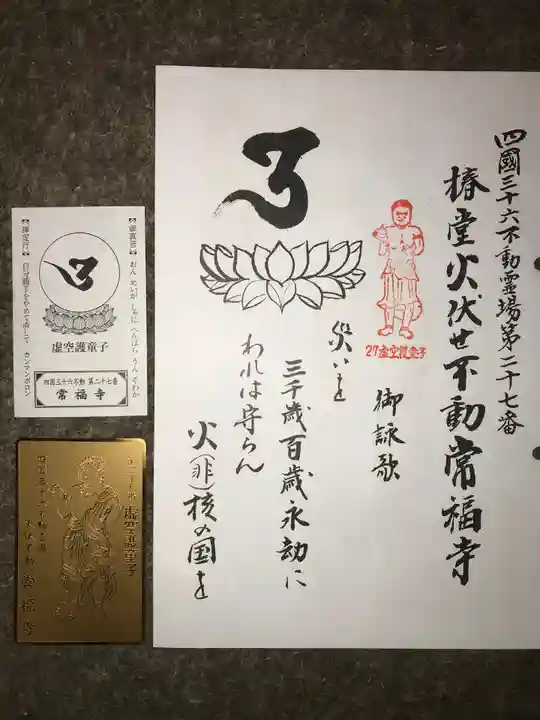 四國三十六不動霊場第二十七番
椿堂火伏せ不動常福寺
27虚空護童子
御詠歌
災いを
三千歳百歳永劫に
われは守らん
火(非)核の国を
【御真言】おん めいが しゃに へんばら うん そわか
虚空護童子
【禅定行】自分勝手をやめて直して カンマンボロン
四国三十六不動 第二十七番
常福寺
第二十七番
虚空護童子
四国三十六不動霊場
火伏不動 常福寺